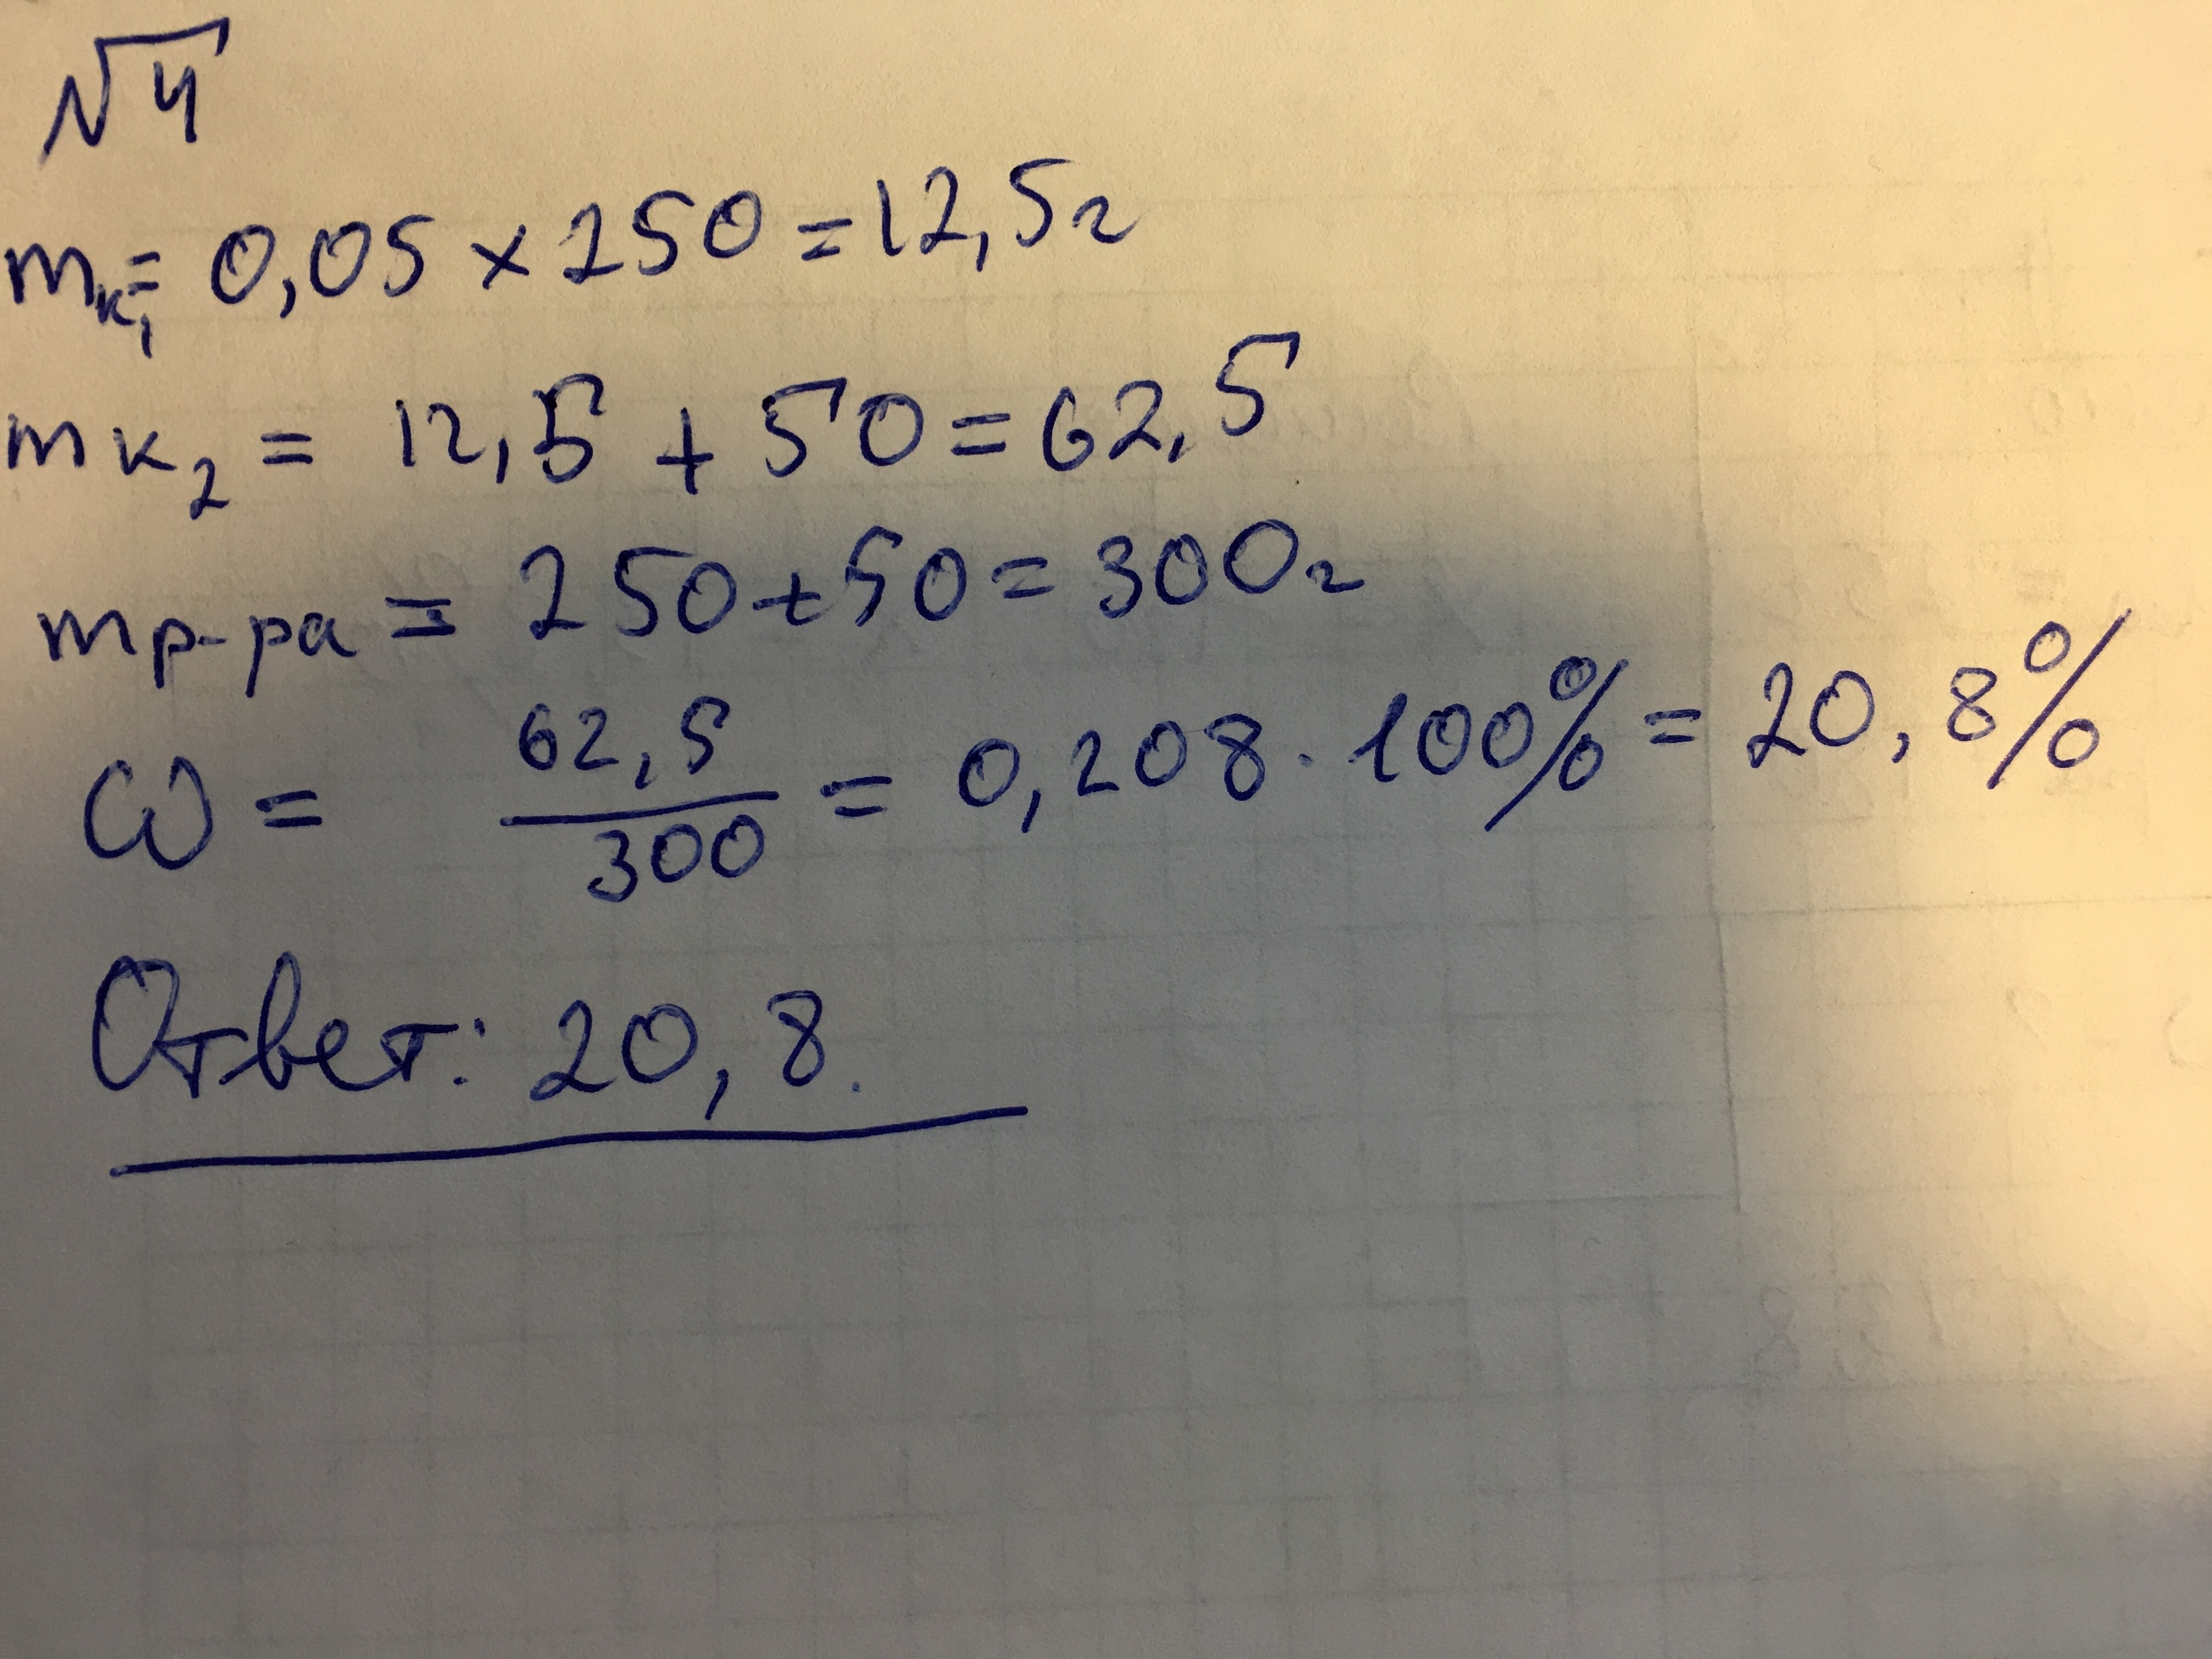 №4
mк₁= 0,05 × 250 = 12,5г
mк₂ = 12,5 + 50 = 62,5
mр-ра = 250 + 50 = 300г
ω = 62,5/300 = 0,208 · 100% = 20,8%
Ответ: 20,8.